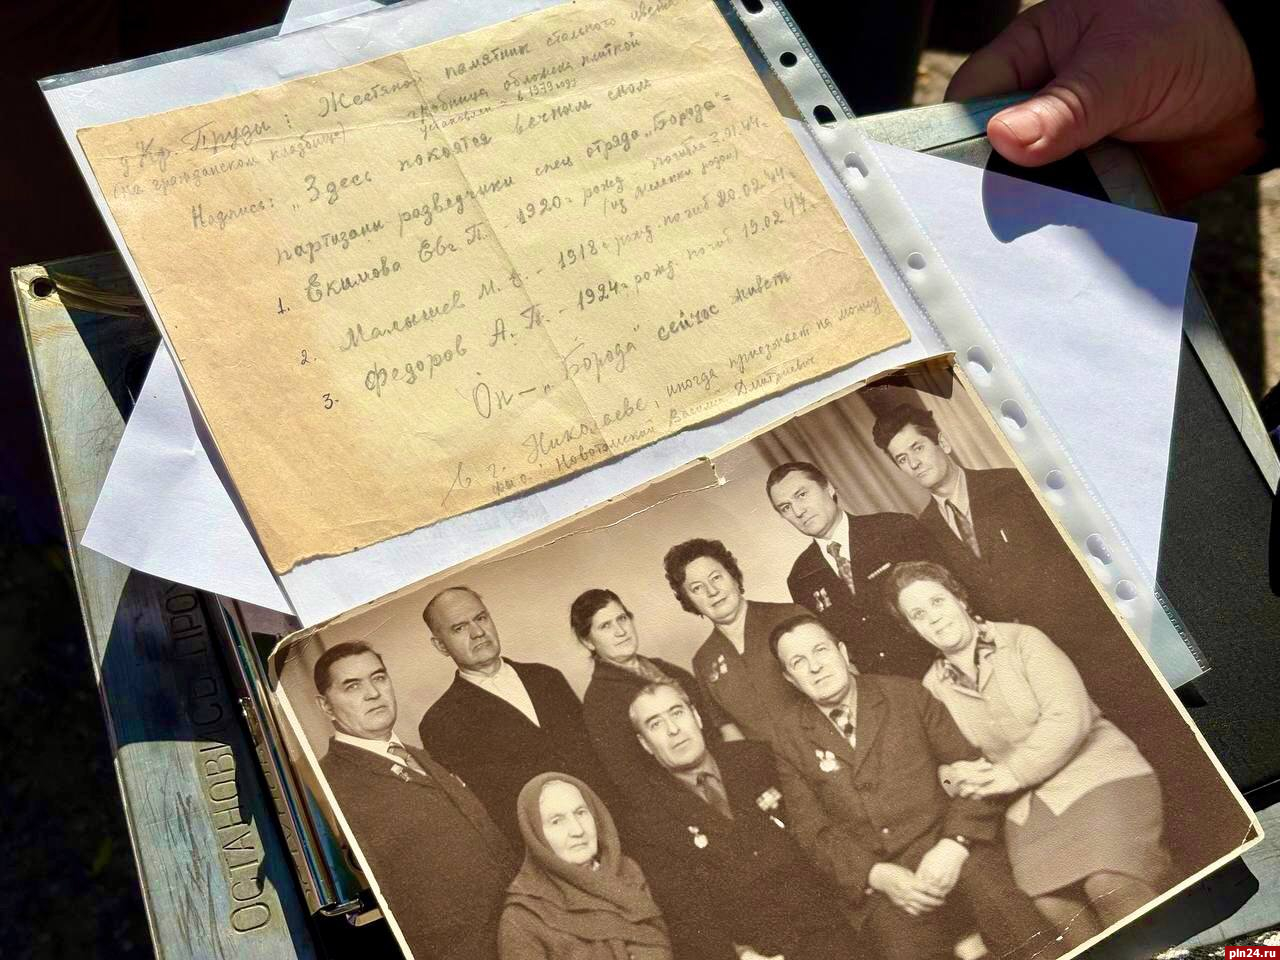 д Кр. Пруды: Жестяной памятник стального цвета
(на гражданском кладбище) гробница обложена плиткой
установлен в 1979 году
Надпись: „Здесь покоятся вечным сном
партизаны разведчики спец отряда „Борода“=
1. Екимова Евг. П. - 1920г рожд погибла 3.01.44г.
(из Меленки родом)
2. Малышев М. Е. - 1918г рожд. погиб 20.02.44г.
3. Федоров А. П. - 1924г рожд. погиб 19.02.44г.
Он - „Борода“ сейчас живет
в г. Николаеве, иногда приезжает на могилу
фио: Новотомский Василий Дмитриевич
ОСТАНОВИСЬ ПРО
pln24.ru